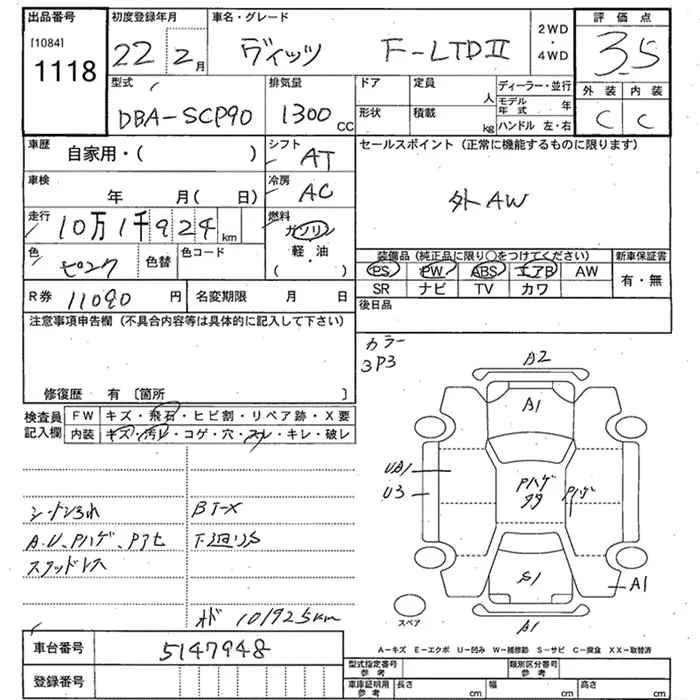 出品番号
[1084]
1118
初度登録年月
22 2月
車名・グレード
ヴィッツ F-LTDⅡ
2WD
・
4WD
評価点
3.5
外装 内装
C C
型式
DBA-SCP90
排気量
1300 CC
ドア 定員 人
形状 積載 kg
ディーラー・並行
モデル年式 年
ハンドル 左・右
車歴
自家用・( )
シフト
AT
車検
年 月( 日)
冷房
AC
走行
10万1千924 km
燃料
ガソリン
軽・油
( )
色
ピンク
色替
色コード
R券 11090 円
名変期限 月 日
セールスポイント (正常に機能するものに限ります)
外AW
装備品 (純正品に限り○をつけてください)
PS PW ABS エアB AW
SR ナビ TV カワ
新車保証書
有・無
後日品
注意事項申告欄 (不具合内容等は具体的に記入して下さい)
修復歴 有 〔箇所 〕
検査員
記入欄
FW キズ・飛石・ヒビ割・リペア跡・X要
内装 キズ・汚レ・コゲ・穴・スレ・キレ・破レ
カラー
3P3
A2
A1
UA1
U3
Pハゲ
Pハゲ
S1
A1
A1
スペア
A.U、Pハゲ、Pアセ 下廻りS
スタッドレス
オド 101925km
A－キズ E－エクボ U－凹み W－補修跡 S－サビ C－腐食 XX－取替済
車台番号 5147948
登録番号
型式指定番号
参考
類別区分番号
参考
車庫証明用
参考
長さ cm 幅 cm 高さ cm